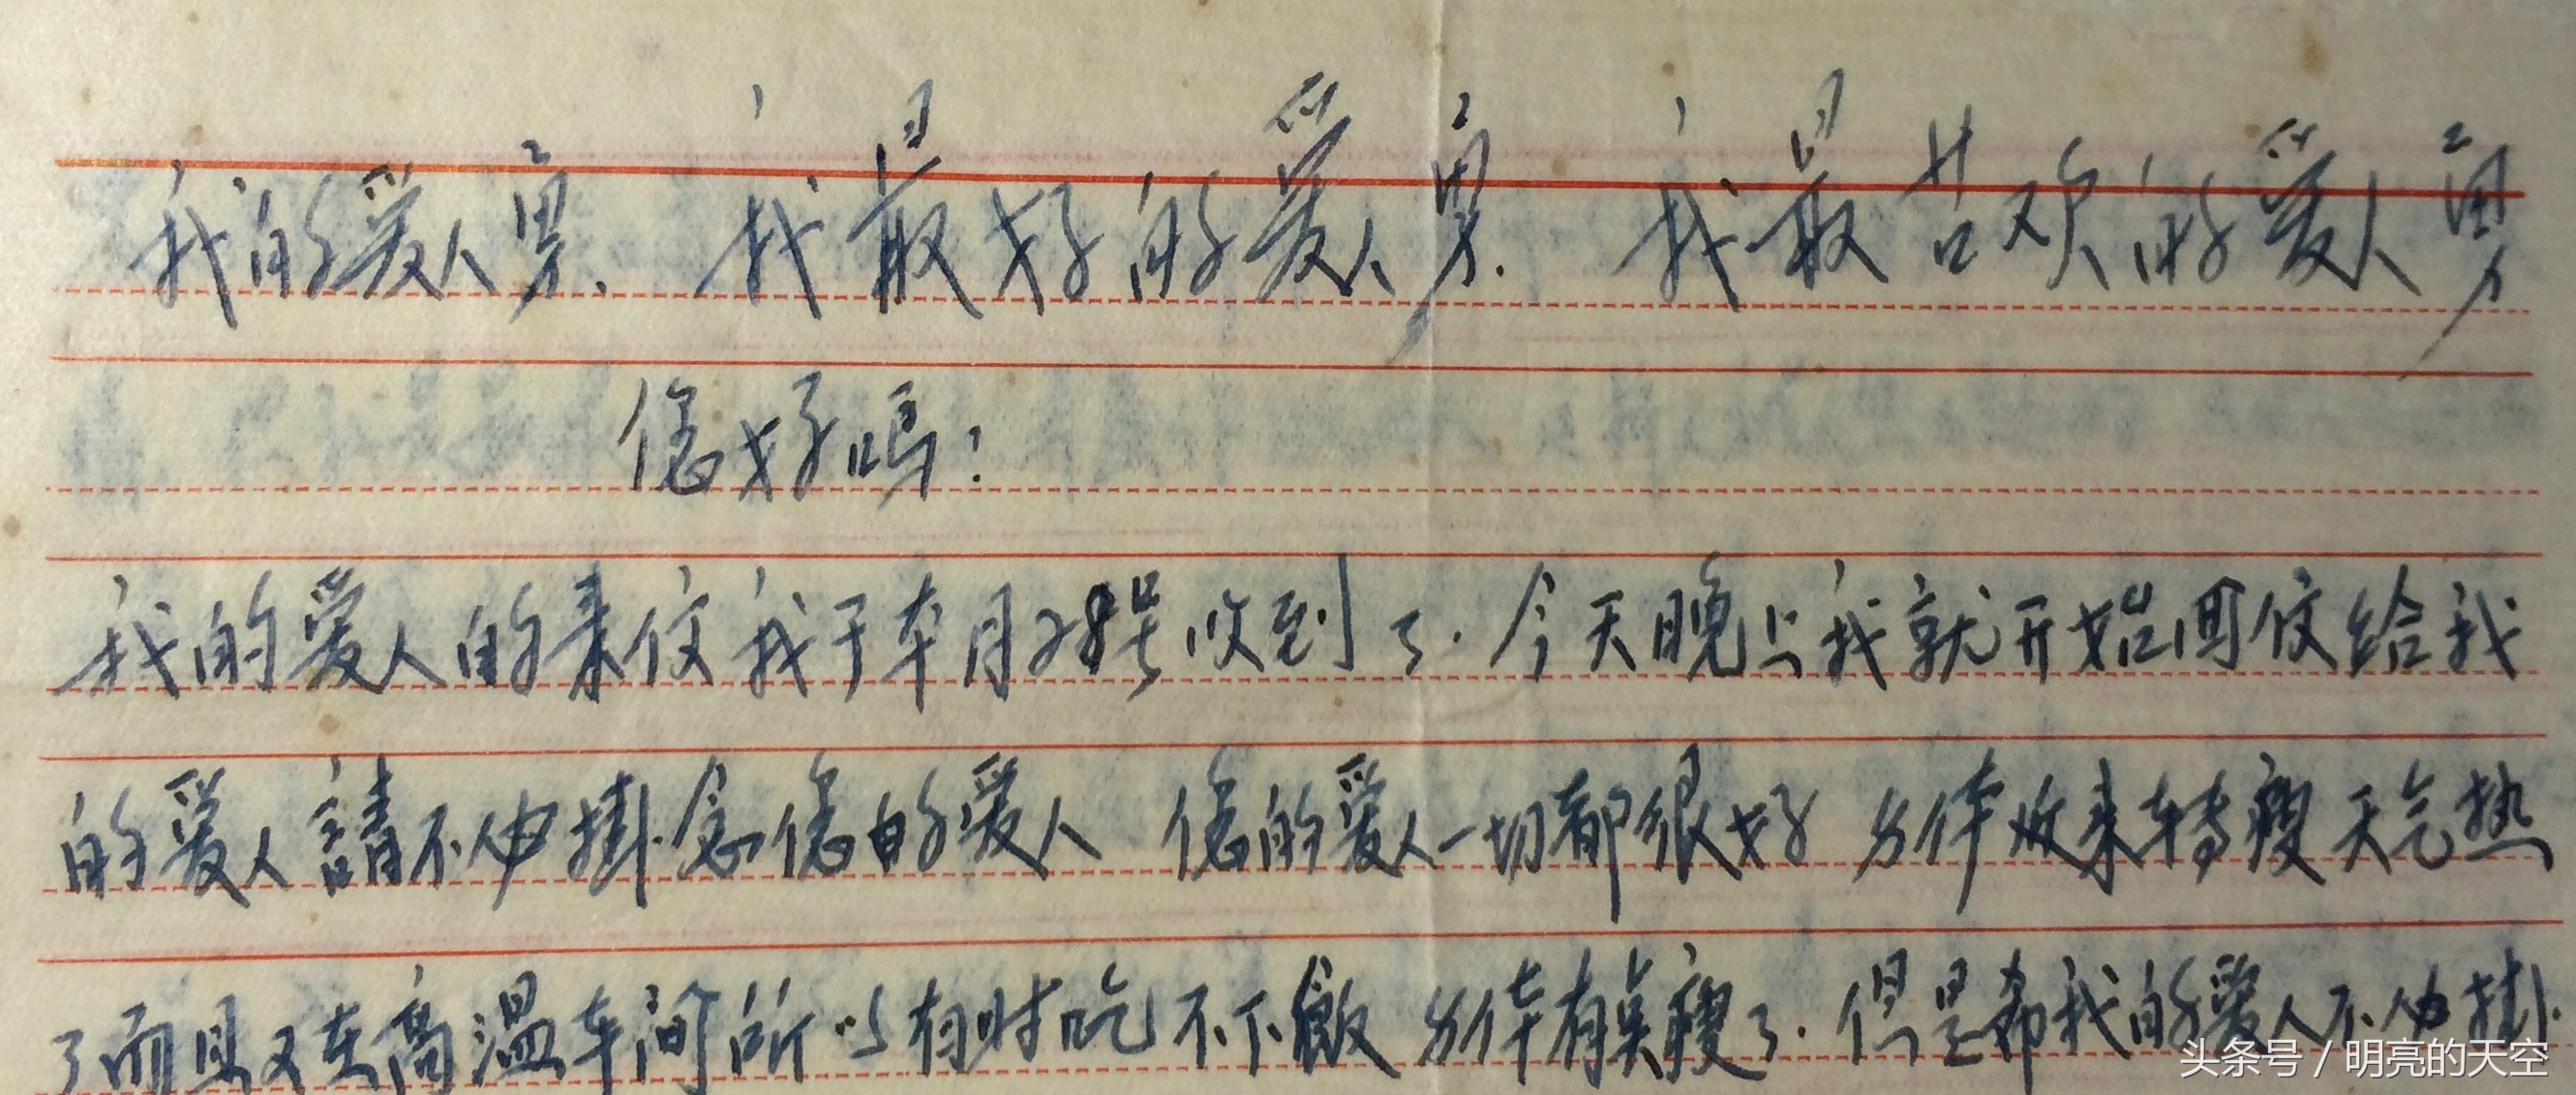 我的爱人勇.我最好的爱人勇.我最苦欢的爱人勇
您好吗:
我的爱人的来信我于本月28号收到了.今天晚上我就开始回信给我
的爱人請不必掛念您的爱人 您的爱人一切都很好 身体收来转瘦天气热
了而且又在高温车间所以有时吃不下飯 身体有点瘦了.但是希我的爱人不必掛
头条号 / 明亮的天空